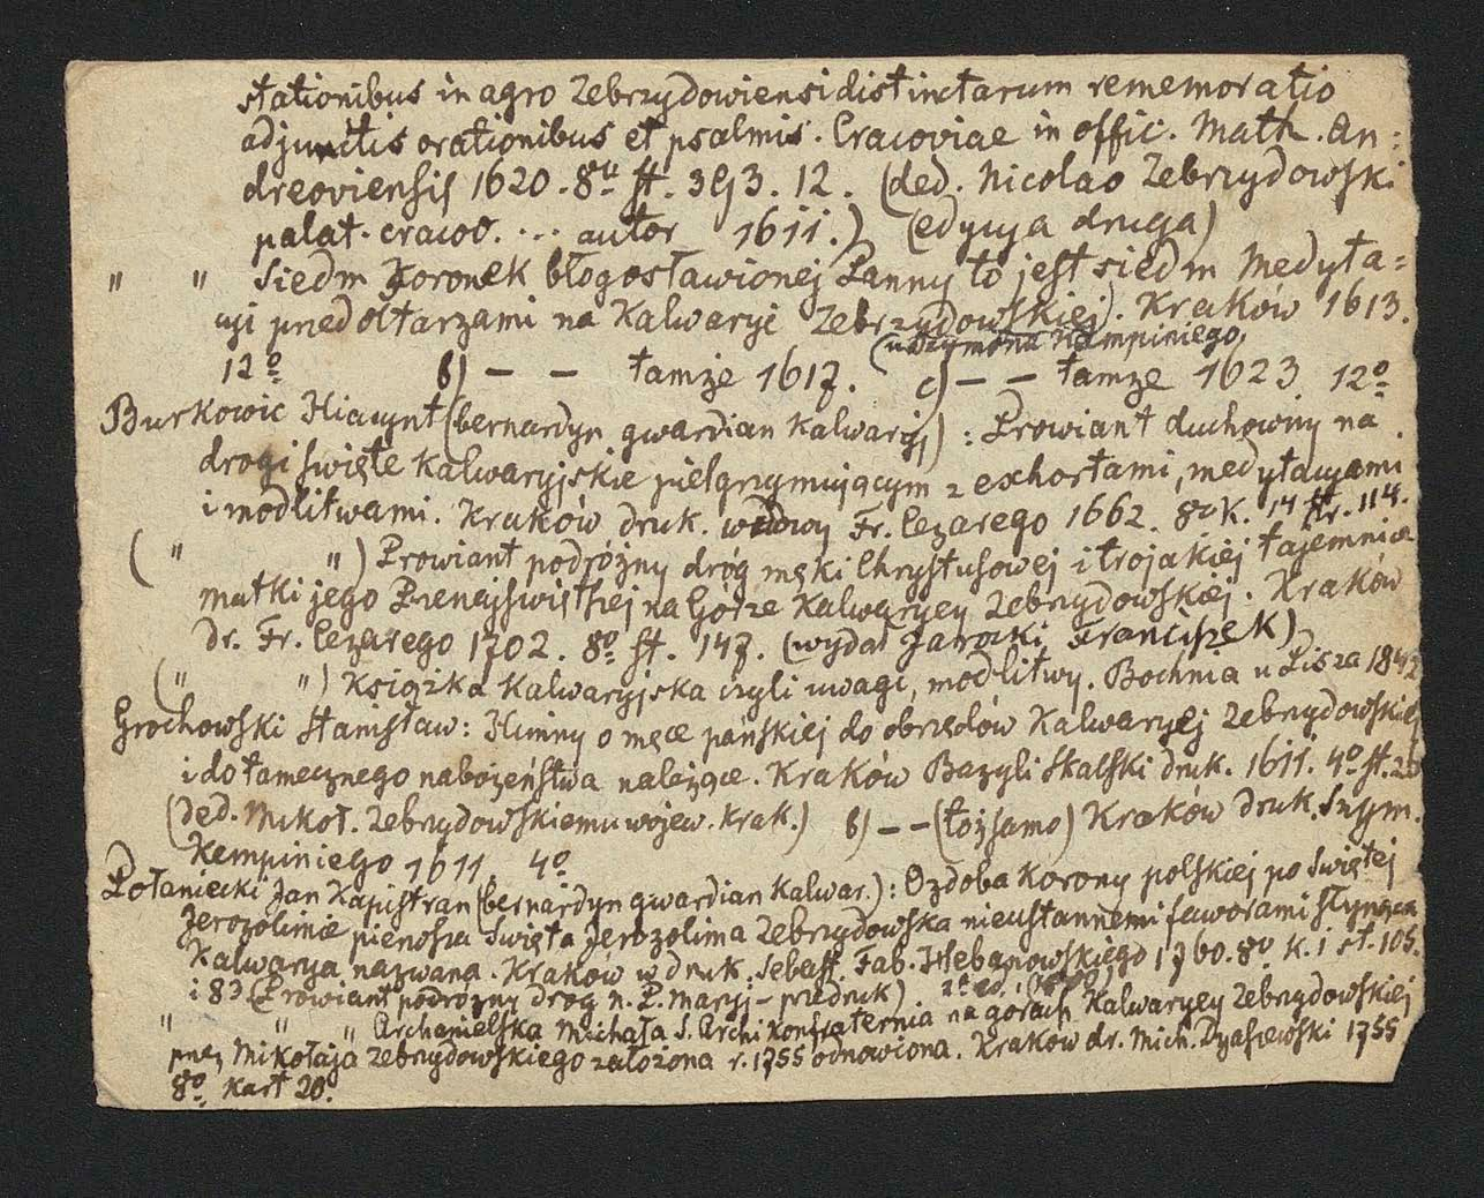 stationibus in agro Zebrzydowiensi distinctarum rememoratio
adjunctis orationibus et psalmis. Cracoviae in offic. Math. An:
dreoviensis 1620. 8º st. 393. 12. (ded. Nicolao Zebrzydowski
palat. cracov. ... autor 1611.) (edycyja druga)
" " Siedm Koronek błogosławionej Panny to jest siedm Medyta=
cyi przed ołtarzami na Kalwaryi Zebrzydowskiej. Kraków 1613.
(u Szymona Kempiniego)
12º b) — — tamże 1617. c) — — tamże 1623 12º
Burkowic Hiacynt (bernardyn gwardian Kalwaryj) : Prowiant duchowny na
drogi święte Kalwaryjskie pielgrzymującym z exhortami, medytacyami
i modlitwami. Kraków druk. wdowy Fr. Cezarego 1662. 8º k. 14 str. 114.
(" ") Prowiant podróżny dróg męki Chrystusowej i trojakiej tajemnice
matki jego Przenajświętszej na Górze Kalwaryey Zebrzydowskiej. Kraków
dr. Fr. Cezarego 1702. 8º st. 147. (wydał Jarocki Franciszek)
(" ") Książka Kalwaryjska czyli uwagi, modlitwy. Bochnia u Pisza 1842
Grochowski Stanisław: Himny o męce pańskiej do obrzędów Kalwaryej Zebrzydowskiej
i do tamecznego nabożeństwa należące. Kraków Bazyli Skalski druk. 1611. 4º st.
(ded. Mikoł. Zebrzydowskiemu wojew. krak.) b) — — (tożsamo) Kraków druk. Szym.
Kempiniego 1611. 4º
Połaniecki Jan Kapistran (bernardyn gwardian Kalwar.): Ozdoba Korony polskiej po świętej
Jerozolimie pierwsza święta Jerozolima Zebrzydowska nieustannemi faworami słynąca
Kalwarya nazwana. Kraków w druk. Sebast. Fab. Hebanowskiego 1760. 8º k. 1 st. 105.
i 83 (Prowiant podróżny dróg N. P. Maryj - przedruk). 2º ed.
" " " Archanielska Michała S. Archi Konfraternia na górach Kalwaryey Zebrzydowskiej
przez Mikołaja Zebrzydowskiego założona r. 1755 odnowiona. Kraków dr. Mich. Dyaszewski 1755
8º kart 20.